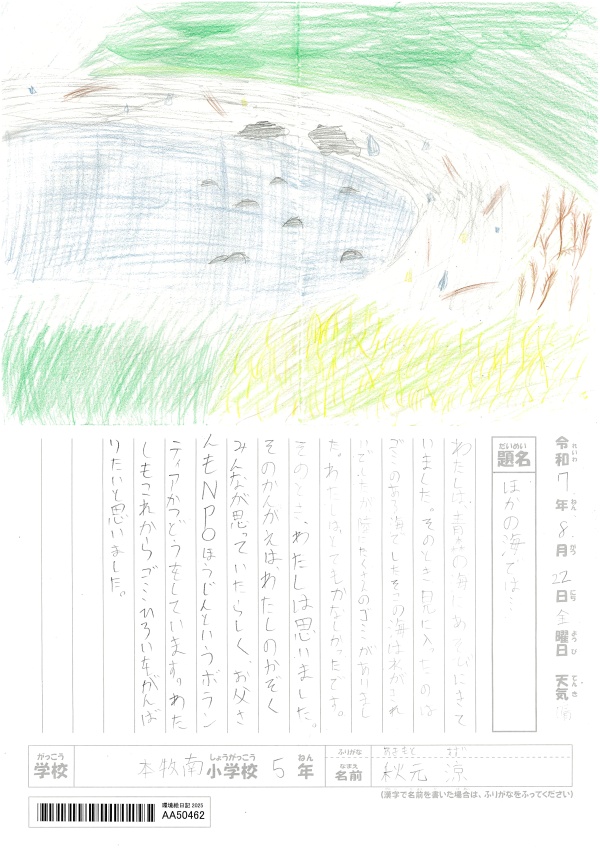 令和7年8月22日金曜日 天気
題名 ほかの海では…
わたしは、青森の海にあそびにきて
いました。そのとき目に入ったのは
ごみのある海でした。その海は水がきれ
いでしたが陸にたくさんのゴミがありまし
た。わたしはとてもかなしかったです。
そのとき、わたしは思いました。
そのかんがえは、わたしのかぞく
みんなが思っていたらしく、お父さ
んもNPOほうじんというボラン
ティアかつどうをしています。わた
しもこれからゴミひろいをがんば
りたいと思いました。
がっこう 学校 本牧南小学校 5年
ふりがな あきもと
なまえ 名前 秋元 涼
(漢字で名前を書いた場合は、ふりがなをふってください)
環境絵日記 2025
AA50462